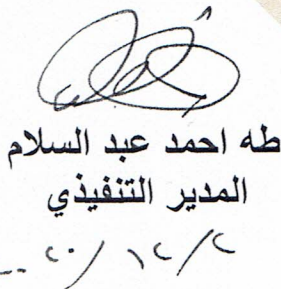 طه احمد عبد السلام
المدير التنفيذي
٢٠/١٢/٢